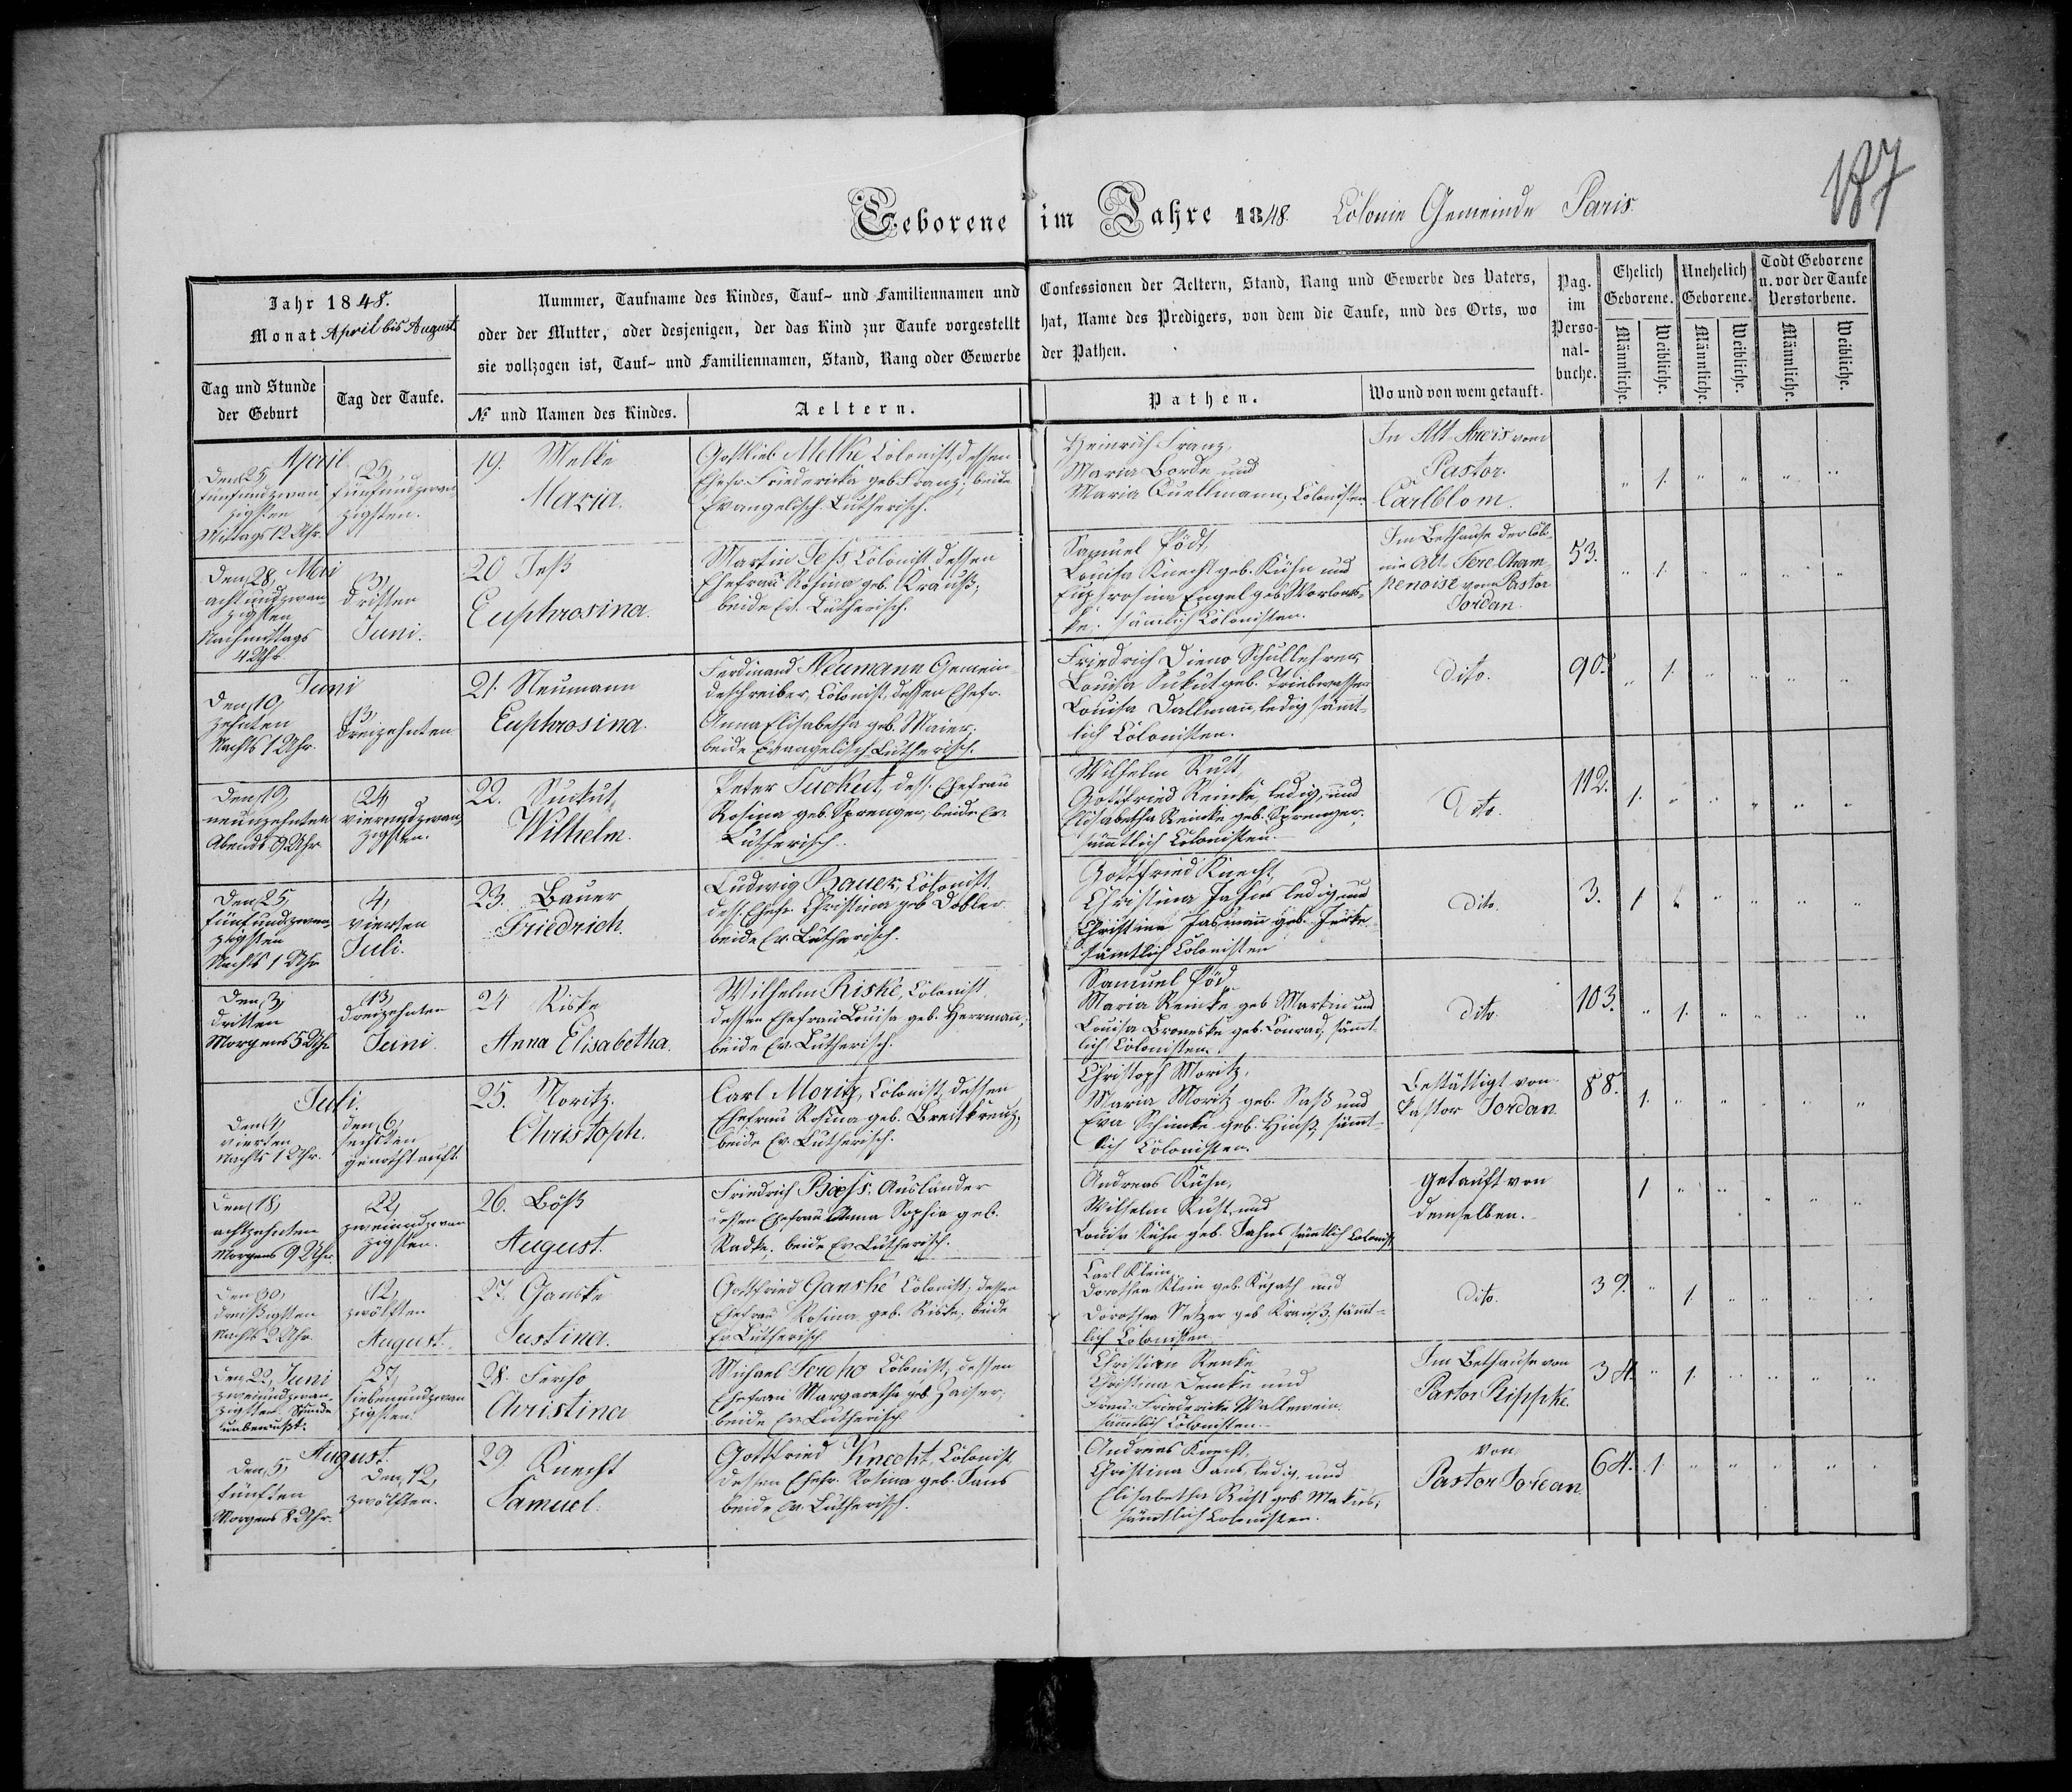 187
Geborene im Jahre 1848. Colonie Gemeinde Paris.
Jahr 1848.
Monat April bis August.
Nummer, Taufname des Kindes, Tauf- und Familiennamen und
oder der Mutter, oder desjenigen, der das Kind zur Taufe vorgestellt
sie vollzogen ist, Tauf- und Familiennamen, Stand, Rang oder Gewerbe
Confessionen der Aeltern, Stand, Rang und Gewerbe des Vaters,
hat, Name des Predigers, von dem die Taufe, und des Orts, wo
der Pathen.
Pag. im Perso-nal-buche.
Ehelich Geborene.
Unehelich Geborene.
Todt Geborene u. vor der Taufe Verstorbene.
Männliche. Weibliche. Männliche. Weibliche. Männliche. Weibliche.
Tag und Stunde der Geburt
Tag der Taufe.
№ und Namen des Kindes.
Aeltern.
Pathen.
Wo und von wem getauft.
April
Den 25,
fünfundzwan
zigsten
Mittags 12 Uhr.
25,
fünfundzwan
zigsten.
19. Melke
Maria.
Gottlieb Melke Colonist, dessen
Ehefr. Friedericka geb. Franz; beide
Evangelisch Lutherisch.
Heinrich Franz,
Maria Borde und
Maria Quellmann, Colonisten.
In Alt-Arcis vom
Pastor
Carlblom.
" 1. " " " "
Mai
Den 28,
achtundzwan
zigsten
Nachmittags
4 Uhr
3,
dritten
Juni.
20 Jeß
Euphrosina.
Martin Jess, Colonist dessen
Ehefrau Rosina geb. Krauß;
beide Ev. Lutherisch.
Samuel Födt,
Louisa Knecht geb. Kühn und
Euphrosina Engel geb.
sämtlich Colonisten.
Im Bethause der Colo
nie Alt-Fere Cham
penoise vom Pastor
Jordan.
53.
" 1. " " " "
Juni
Den 10,
zehnten
Nachts 1 Uhr.
13,
dreizehnten
21. Neumann
Euphrosina.
Ferdinand Neumann Gemein
deschreiber, Colonist, dessen Ehefr.
Anna Elisabetha geb. Maier;
beide Evangelisch Lutherisch.
Friedrich Dieno Schullehrer,
Louisa Sukut geb. Triebwasser
Louisa Dallmann, ledig sämt
lich Colonisten.
dito.
90.
" 1. " " " "
Den 19,
neunzehnten
Abends 9 Uhr
24,
vierundzwan
zigsten.
22. Suckut
Wilhelm.
Peter Suckut, dess. Ehefrau
Rosina geb. Sprenger; beide Ev.
Lutherisch.
Wilhelm Rust,
Gottfried Reinke, ledig, und
Elisabetha Reinke geb. Sprenger,
sämmtlich Colonisten.
Dito.
112.
1. " " " " "
Den 25,
fünfundzwan
zigsten
Nachts 1 Uhr
4,
vierten
Juli.
23. Bauer
Friedrich.
Ludwig Bauer, Colonist,
dess. Ehefr. Christina geb. Dobler
beide Ev. Lutherisch.
Gottfried Knecht,
Christina Jahns ledig und
Christina Hasmann geb. Jeske
sämtlich Colonisten
dito.
3.
1 " " " " "
Den 3,
dritten
Morgens 5 Uhr
13,
dreizehnten
Juni.
24 Riske
Anna Elisabetha.
Wilhelm Riske, Colonist,
dessen Ehefrau Louisa geb. Herrmann;
beide Ev. Lutherisch.
Samuel Föd,
Maria Reinke geb. Martin und
Louisa Broneske geb. Conrad, sämmt
lich Colonisten.
dito.
103.
" 1. " " " "
Juli.
Den 4,
vierten
Nachts 1 Uhr.
den 6,
sechsten
genothtauft.
25. Moritz.
Christoph.
Carl Moritz, Colonist, dessen
Ehefrau Rosina geb. Breitkreuz;
beide Ev. Lutherisch.
Christoph Moritz,
Maria Moritz geb. Saß und
Eva Schimke geb. Hinß, sämmt
lich Colonisten.
Bestättigt von
Pastor Jordan.
88.
1. " " " " "
Den 18,
achtzehnten
Morgens 9 Uhr.
22,
zweiundzwan
zigsten.
26. Böß
August.
Friedrich Bæss, Ausländer
dessen Ehefrau Anna Sophia geb.
Radke; beide Ev. Lutherisch.
Andreas Kühn,
Wilhelm Rust, und
Louisa Kühn geb. Jahns sämtlich Colonist.
getauft von
demselben.
1 " " " " "
Den 30,
dreißigsten
Nachts 2 Uhr.
12,
zwölften
August.
27. Ganske
Justina.
Gottfried Ganske Colonist, dessen
Ehefrau Rosina geb. Riske; beide
Ev. Lutherisch
Carl Klein,
Dorothea Klein geb. Kujath und
Dorothea Netzer geb. Krauß, sämmt
lich Colonisten.
dito.
39.
" 1 " " " "
Den 22, Juni
zweiundzwan
zigsten Stunde
unbewußt.
27,
siebenundzwan
zigsten.
28. Fercho
Christina
Michael Fercho Colonist, dessen
Ehefrau Margaretha geb. Zaiser;
beide Ev. Lutherisch
Christian Renke,
Christina Demke und
Frau Friederike Wallewein.
sämmtlich Colonisten.
Im Bethause von
Pastor Rippke.
34.
" 1. " " " "
August.
Den 5,
fünften
Morgens 8 Uhr.
Den 12,
zwölften.
29. Knecht
Samuel.
Gottfried Knecht, Colonist,
dessen Ehefr. Rosina geb. Jans
beide Ev. Lutherisch.
Andreas Knecht,
Christina Jans, ledig, und
Elisabetha Rust geb. Makus;
sämmtlich Colonisten.
von
Pastor Jordan.
64.
1. " " " " "